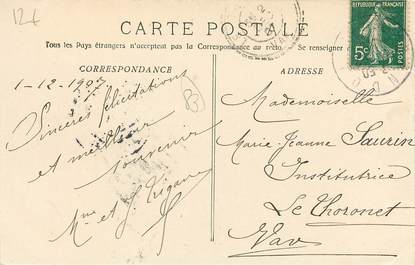 12€
RÉPUBLIQUE FRANÇAISE
5c
CARTE POSTALE
Tous les Pays étrangers n'acceptent pas la Correspondance au recto. Se renseigner
CORRESPONDANCE
ADRESSE
1-12-1907
Sincères félicitations
et meilleur
souvenir
Mme et J. Trigane
Mademoiselle
Marie-Jeanne Saurin
Institutrice
Le Thoronet
Var